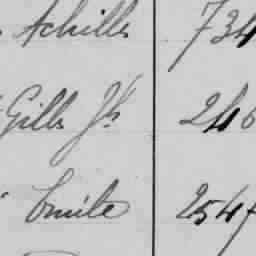 Achilles 734
Gills Jh 246
Emile 2547